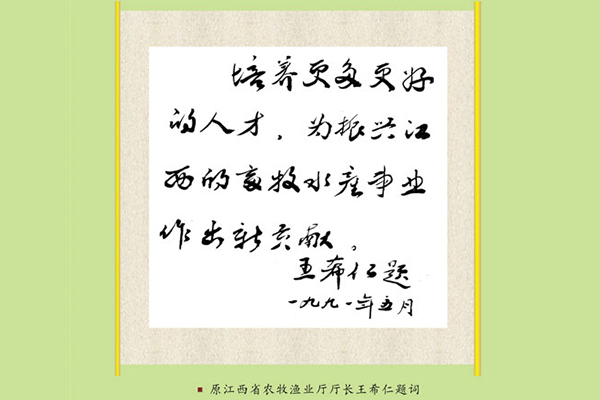 培养更多更好
的人才，为振兴江
西的畜牧水产事业
作出新贡献。
王希仁题
一九九一年五月
■ 原江西省农牧渔业厅厅长王希仁题词